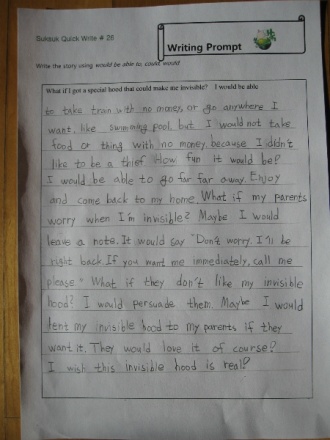 Suksuk Quick Write # 26
Writing Prompt
Write the story using would be able to, could, would
What if I got a special hood that could make me invisible? I would be able
to take train with no money, or go anywhere I
want, like swimming pool, but I would not take
food or thing with no money, because I didn't
like to be a thief. How fun it would be?
I would be able to go far far away. Enjoy
and come back to my home. What if my parents
worry when I'm invisible? Maybe I would
leave a note. It would say "Don't worry. I'll be
right back. If you want me immediately, call me
please." What if they don't like my invisible
hood? I would persuade them. Maybe I would
lent my invisible hood to my parents if they
want it. They would love it of course?
I wish this invisible hood is real?